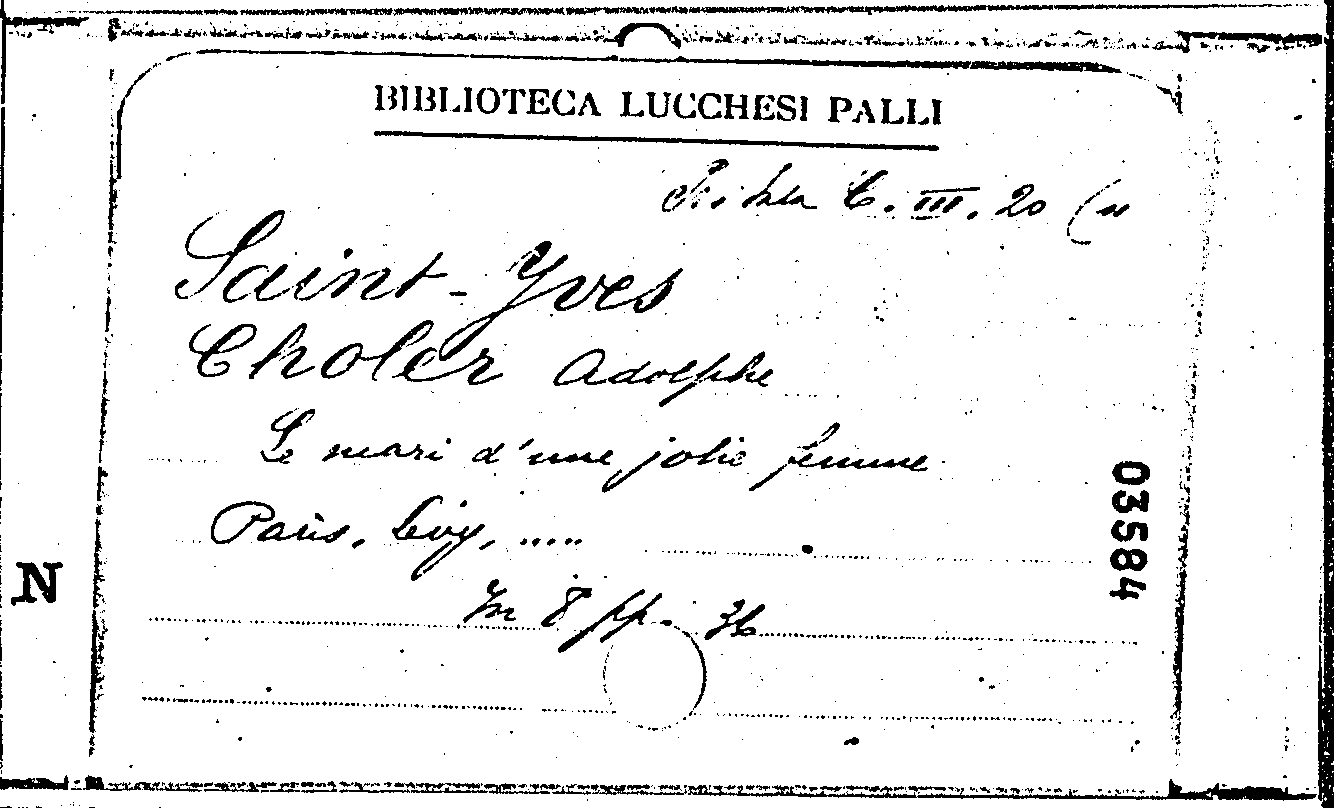 BIBLIOTECA LUCCHESI PALLI
C. III. 20 (11
Saint-Yves
Choler Adolphe
Le mari d'une jolie femme
Paris, Levy, .....
In 8 pp. 36
03584
N